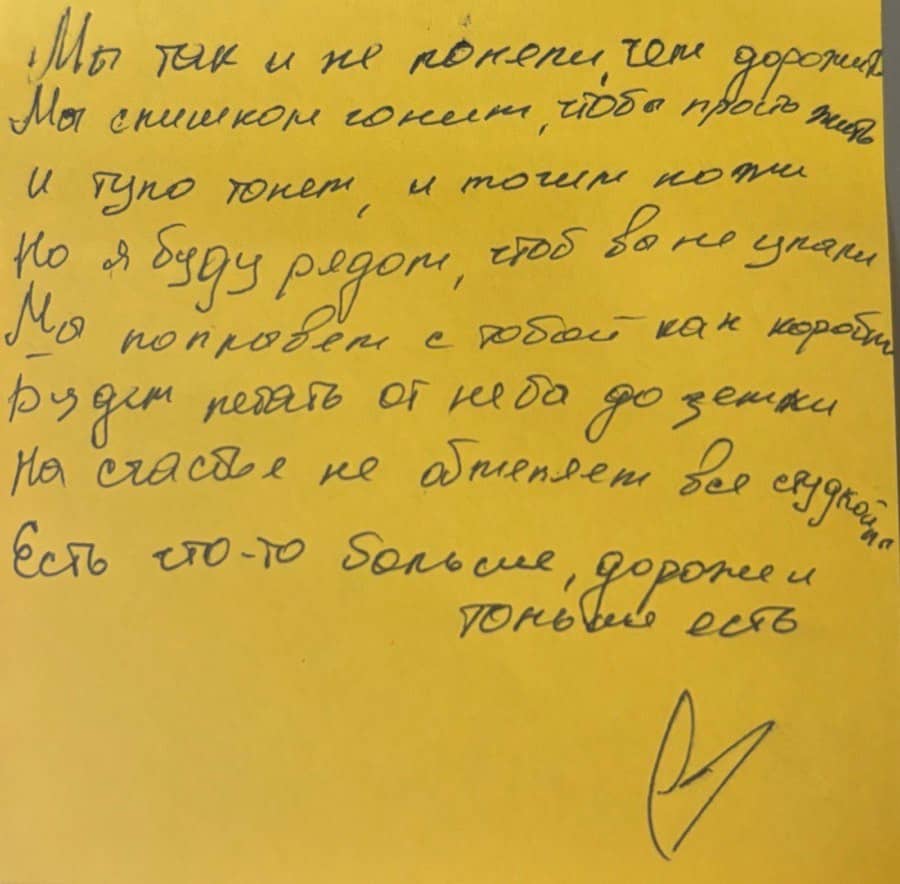 Мы так и не поняли, чем дорожим
Мы слишком гоним, чтобы просто жить
И тупо тонем, и точим ножи
Но я буду рядом, чтоб вы не упали
Мы поплывем с тобой как корабли
Будем летать от неба до земли
На счастье не обменяем все
Есть что-то больше, дороже и
тоньше есть